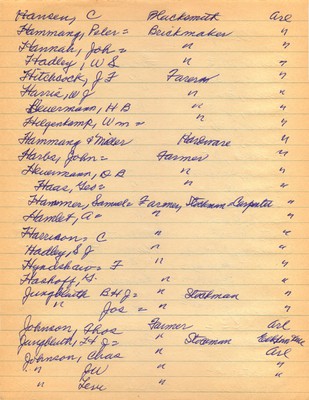 Hansen, C Blacksmith Arl
Hammang, Peter = Brickmaker "
Hannah, Joh = " "
Hadley, W S " "
Hitchcock, J F Farmer "
Harris, W J " "
Heuermann, H B " "
Helgenkamp, Wm = " "
Hammang & Miller Hardware "
Harbs, John = Farmer "
Heuermann, O B " "
Haas, Geo = " "
Hammer, Samuel = Farmer, Stockman & Carpenter "
Hamlet, A = " "
Harrison = C " "
Hadley, S J " "
Hyndshaw = F " "
Hashoff, H. " "
Jungbluth B H J = " Stockman "
" Jos = " "
Johnson, Thos Farmer Arl
Jungbluth, F H J = " Stockman
Johnson, Chas " Arl
" J W " "
" Levi " "